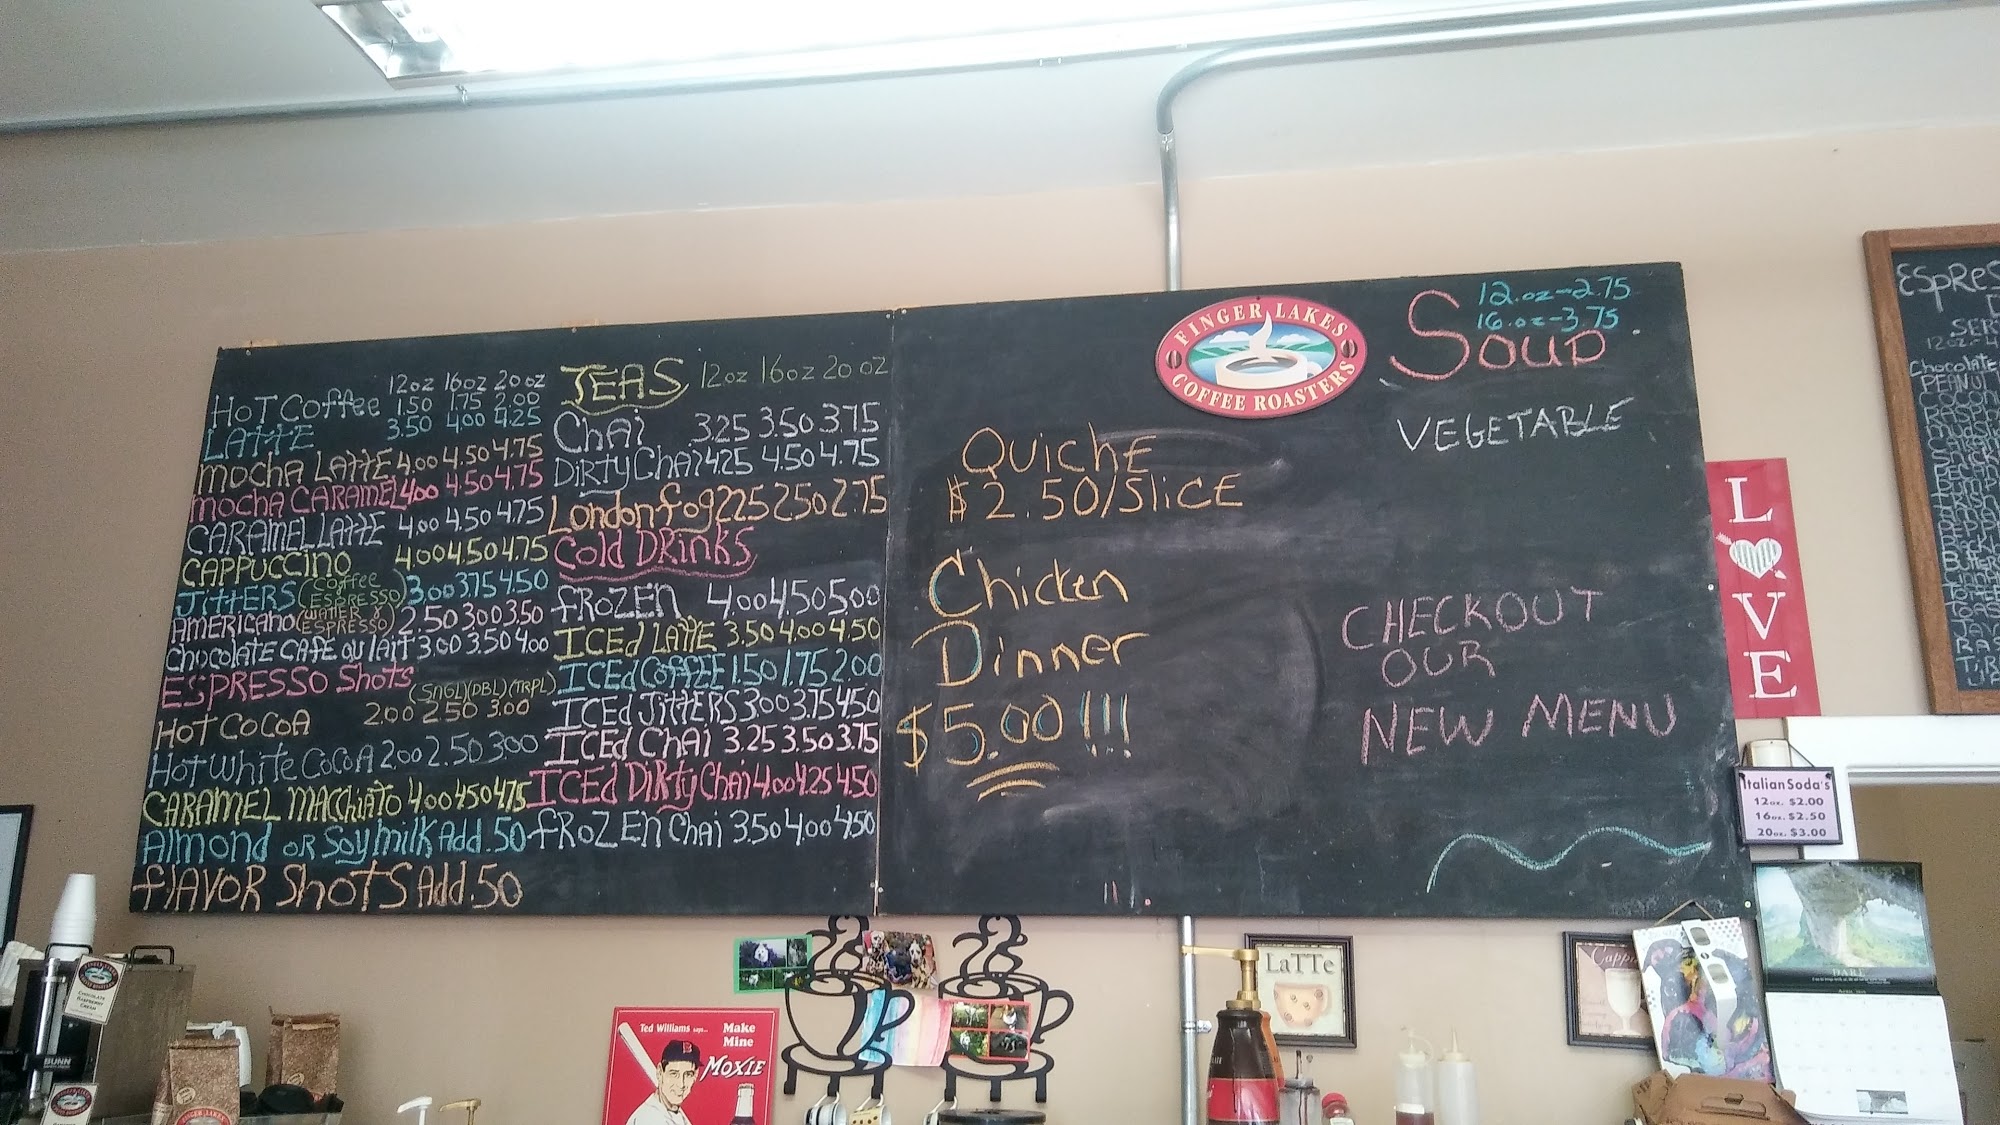 12oz 16oz 20oz
HOT COFFEE 1.50 1.75 2.00
LATTE 3.50 4.00 4.25
MOCHA LATTE 4.00 4.50 4.75
MOCHA CARAMEL 4.00 4.50 4.75
CARAMEL LATTE 4.00 4.50 4.75
CAPPUCCINO 4.00 4.50 4.75
JITTERS (COFFEE ESPRESSO) 3.00 3.75 4.50
AMERICANO (WATTER & ESPRESSO) 2.50 3.00 3.50
CHOCOLATE CAFE OU LAIT 3.00 3.50 4.00
ESPRESSO SHOTS
(SNGL) (DBL) (TRPL)
HOT COCOA 2.00 2.50 3.00
HOT WHITE COCOA 2.00 2.50 3.00
CARAMEL MACCHIATO 4.00 4.50 4.75
ALMOND OR SOYMILK ADD .50
FLAVOR SHOTS ADD .50
TEAS 12oz 16oz 20oz
CHAI 3.25 3.50 3.75
DIRTY CHAI 4.25 4.50 4.75
London Fog 2.25 2.50 2.75
COLD DRINKS
FROZEN 4.00 4.50 5.00
ICED LATTE 3.50 4.00 4.50
ICED COFFEE 1.50 1.75 2.00
ICED JITTERS 3.00 3.75 4.50
ICED CHAI 3.25 3.50 3.75
ICED DIRTY CHAI 4.00 4.25 4.50
FROZEN CHAI 3.50 4.00 4.50
FINGER LAKES
COFFEE ROASTERS
QUICHE
$2.50/SLICE
Chicken
Dinner
$5.00!!!
12.oz-2.75
16.oz-3.75
SOUP
VEGETABLE
CHECKOUT
OUR
NEW MENU
LOVE
ESPRES
SER
Chocolate
PEANUT
Italian Soda's
12oz. $2.00
16oz. $2.50
20oz. $3.00
LaTTe
Ted Williams says...
Make
Mine
MOXIE
BUNN
CHOCOLATE
RASPBERRY
CREAM
FINGER LAKES